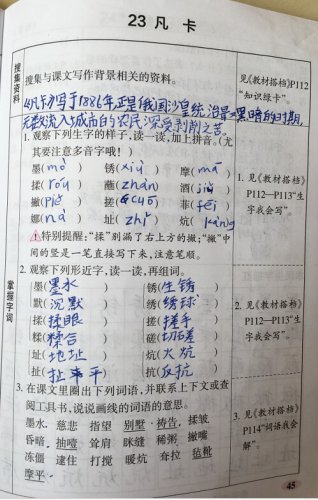 23 凡 卡
搜集资料
搜集与课文写作背景相关的资料。
《凡卡》写于1886年,正是俄国沙皇统治最黑暗的时期,
无数流入城市的农民深受剥削之苦。
见《教材搭档》P112
“知识绿卡”。
掌握字词
1. 观察下列生字的样子,读一读,加上拼音。(尤
其要注意多音字哦!)
墨(mò) 锈(xiù) 摩(mā)
揉(róu) 蘸(zhàn) 酒(jiǔ)
撇(piě) 搓(cuō) 非(fēi)
娜(nà) 址(zhǐ) 炕(kàng)
特别提醒:“揉”别漏了右上方的撇;“撇”中
间的竖是一笔直接写下来,注意笔顺。
1. 见《教材搭档》
P112—P113“生
字我会写”。
2. 观察下列形近字,读一读,再组词。
墨(墨水) 锈(生锈)
默(沉默) 绣(绣球)
揉(揉眼) 搓(搓手)
糅(糅合) 磋(切磋)
址(地址) 炕(火炕)
扯(扯平) 抗(反抗)
2. 见《教材搭档》
P112—P113“生
字我会写”。
3. 在课文里圈出下列词语,并联系上下文或查
阅工具书,说说画线的词语的意思。
墨水 慈悲 指望 别墅 祷告 揉皱
昏暗 抽噎 耸肩 眯缝 稀粥 撇嘴
冻僵 逮住 打搅 暖炕 耷拉 毡靴
摩平
3. 见《教材搭档》
P114“词语我会
解”。
45